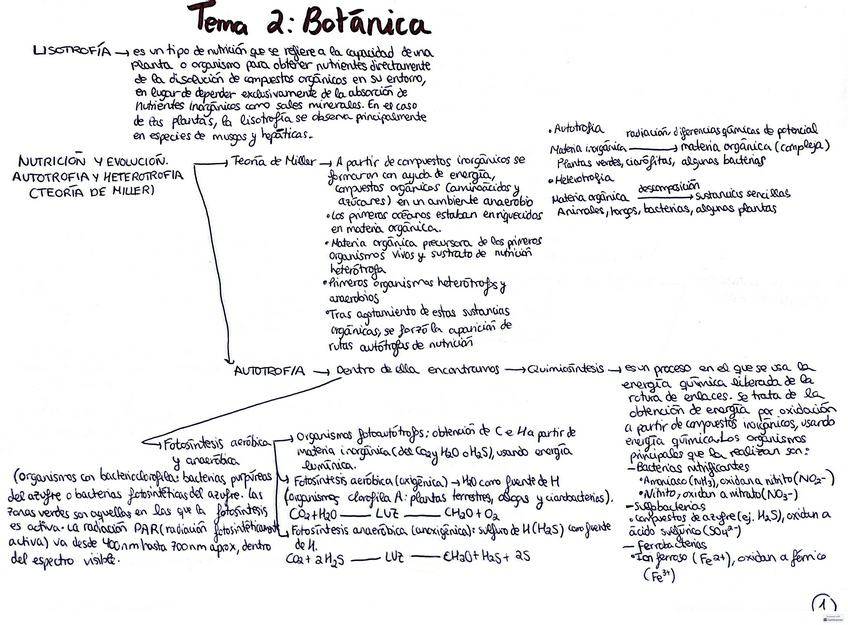 Tema 2: Botánica
LISOTROFÍA → es un tipo de nutrición que se refiere a la capacidad de una
planta o organismo para obtener nutrientes directamente
de la disolución de compuestos orgánicos en su entorno,
en lugar de depender exclusivamente de la absorción de
nutrientes inorgánicos como sales minerales. En el caso
de las plantas, la lisotrofía se observa principalmente
en especies de musgos y hepáticas.
NUTRICIÓN Y EVOLUCIÓN.
AUTOTROFIA Y HETEROTROFIA
(TEORÍA DE MILLER)
→ Teoría de Miller → A partir de compuestos inorgánicos se
formaron con ayuda de energía,
compuestos orgánicos (aminoácidos y
azúcares) en un ambiente anaerobio
• Los primeros océanos estaban enriquecidos
en materia orgánica.
• Materia orgánica precursora de los primeros
organismos vivos y sustrato de nutrición
heterótrofa
• Primeros organismos heterótrofos y
anaerobios
• Tras agotamiento de estas sustancias
orgánicas, se forzó la aparición de
rutas autótrofas de nutrición
• Autotrofia
radiación diferencias químicas de potencial
Materia inorgánica → materia orgánica (compleja)
Plantas verdes, cianofitas, algunas bacterias
• Heterotrofia
descomposición
Materia orgánica → sustancias sencillas
Animales, hongos, bacterias, algunas plantas
AUTOTROFÍA → Dentro de ella encontramos → Quimiosíntesis → es un proceso en el que se usa la
energía química liberada de la
rotura de enlaces. Se trata de la
obtención de energía por oxidación
a partir de compuestos inorgánicos, usando
energía química. Los organismos
principales que la realizan son:
— Bacterias nitrificantes
• Amoniaco (NH3), oxidan a nitrito (NO2-)
• Nitrito, oxidan a nitrato (NO3-)
— Sulfobacterias
• Compuestos de azufre (ej. H2S), oxidan a
ácido sulfúrico (SO4 2-)
— Ferrobacterias
• Ion ferroso (Fe2+), oxidan a férrico
(Fe3+)
→ Fotosíntesis aeróbica
y anaeróbica
(Organismos con bacterioclorofila: bacterias purpúreas
del azufre o bacterias fotosintéticas del azufre. Las
zonas verdes son aquellas en las que la fotosíntesis
es activa. La radiación PAR (radiación fotosintéticamente
activa) va desde 400nm hasta 700nm aprox, dentro
del espectro visible.
→ Organismos fotoautótrofos; obtención de C e H a partir de
materia inorgánica (del CO2 y H2O o H2S), usando energía
lumínica.
→ Fotosíntesis aeróbica (oxigénica) → H2O como fuente de H
(organismos clorofila A: plantas terrestres, algas y cianobacterias).
CO2 + H2O — LUZ — CH2O + O2
→ Fotosíntesis anaeróbica (anoxigénica): sulfuro de H (H2S) como fuente
de H.
CO2 + 2H2S — LUZ — CH2O + H2S + 2S
1